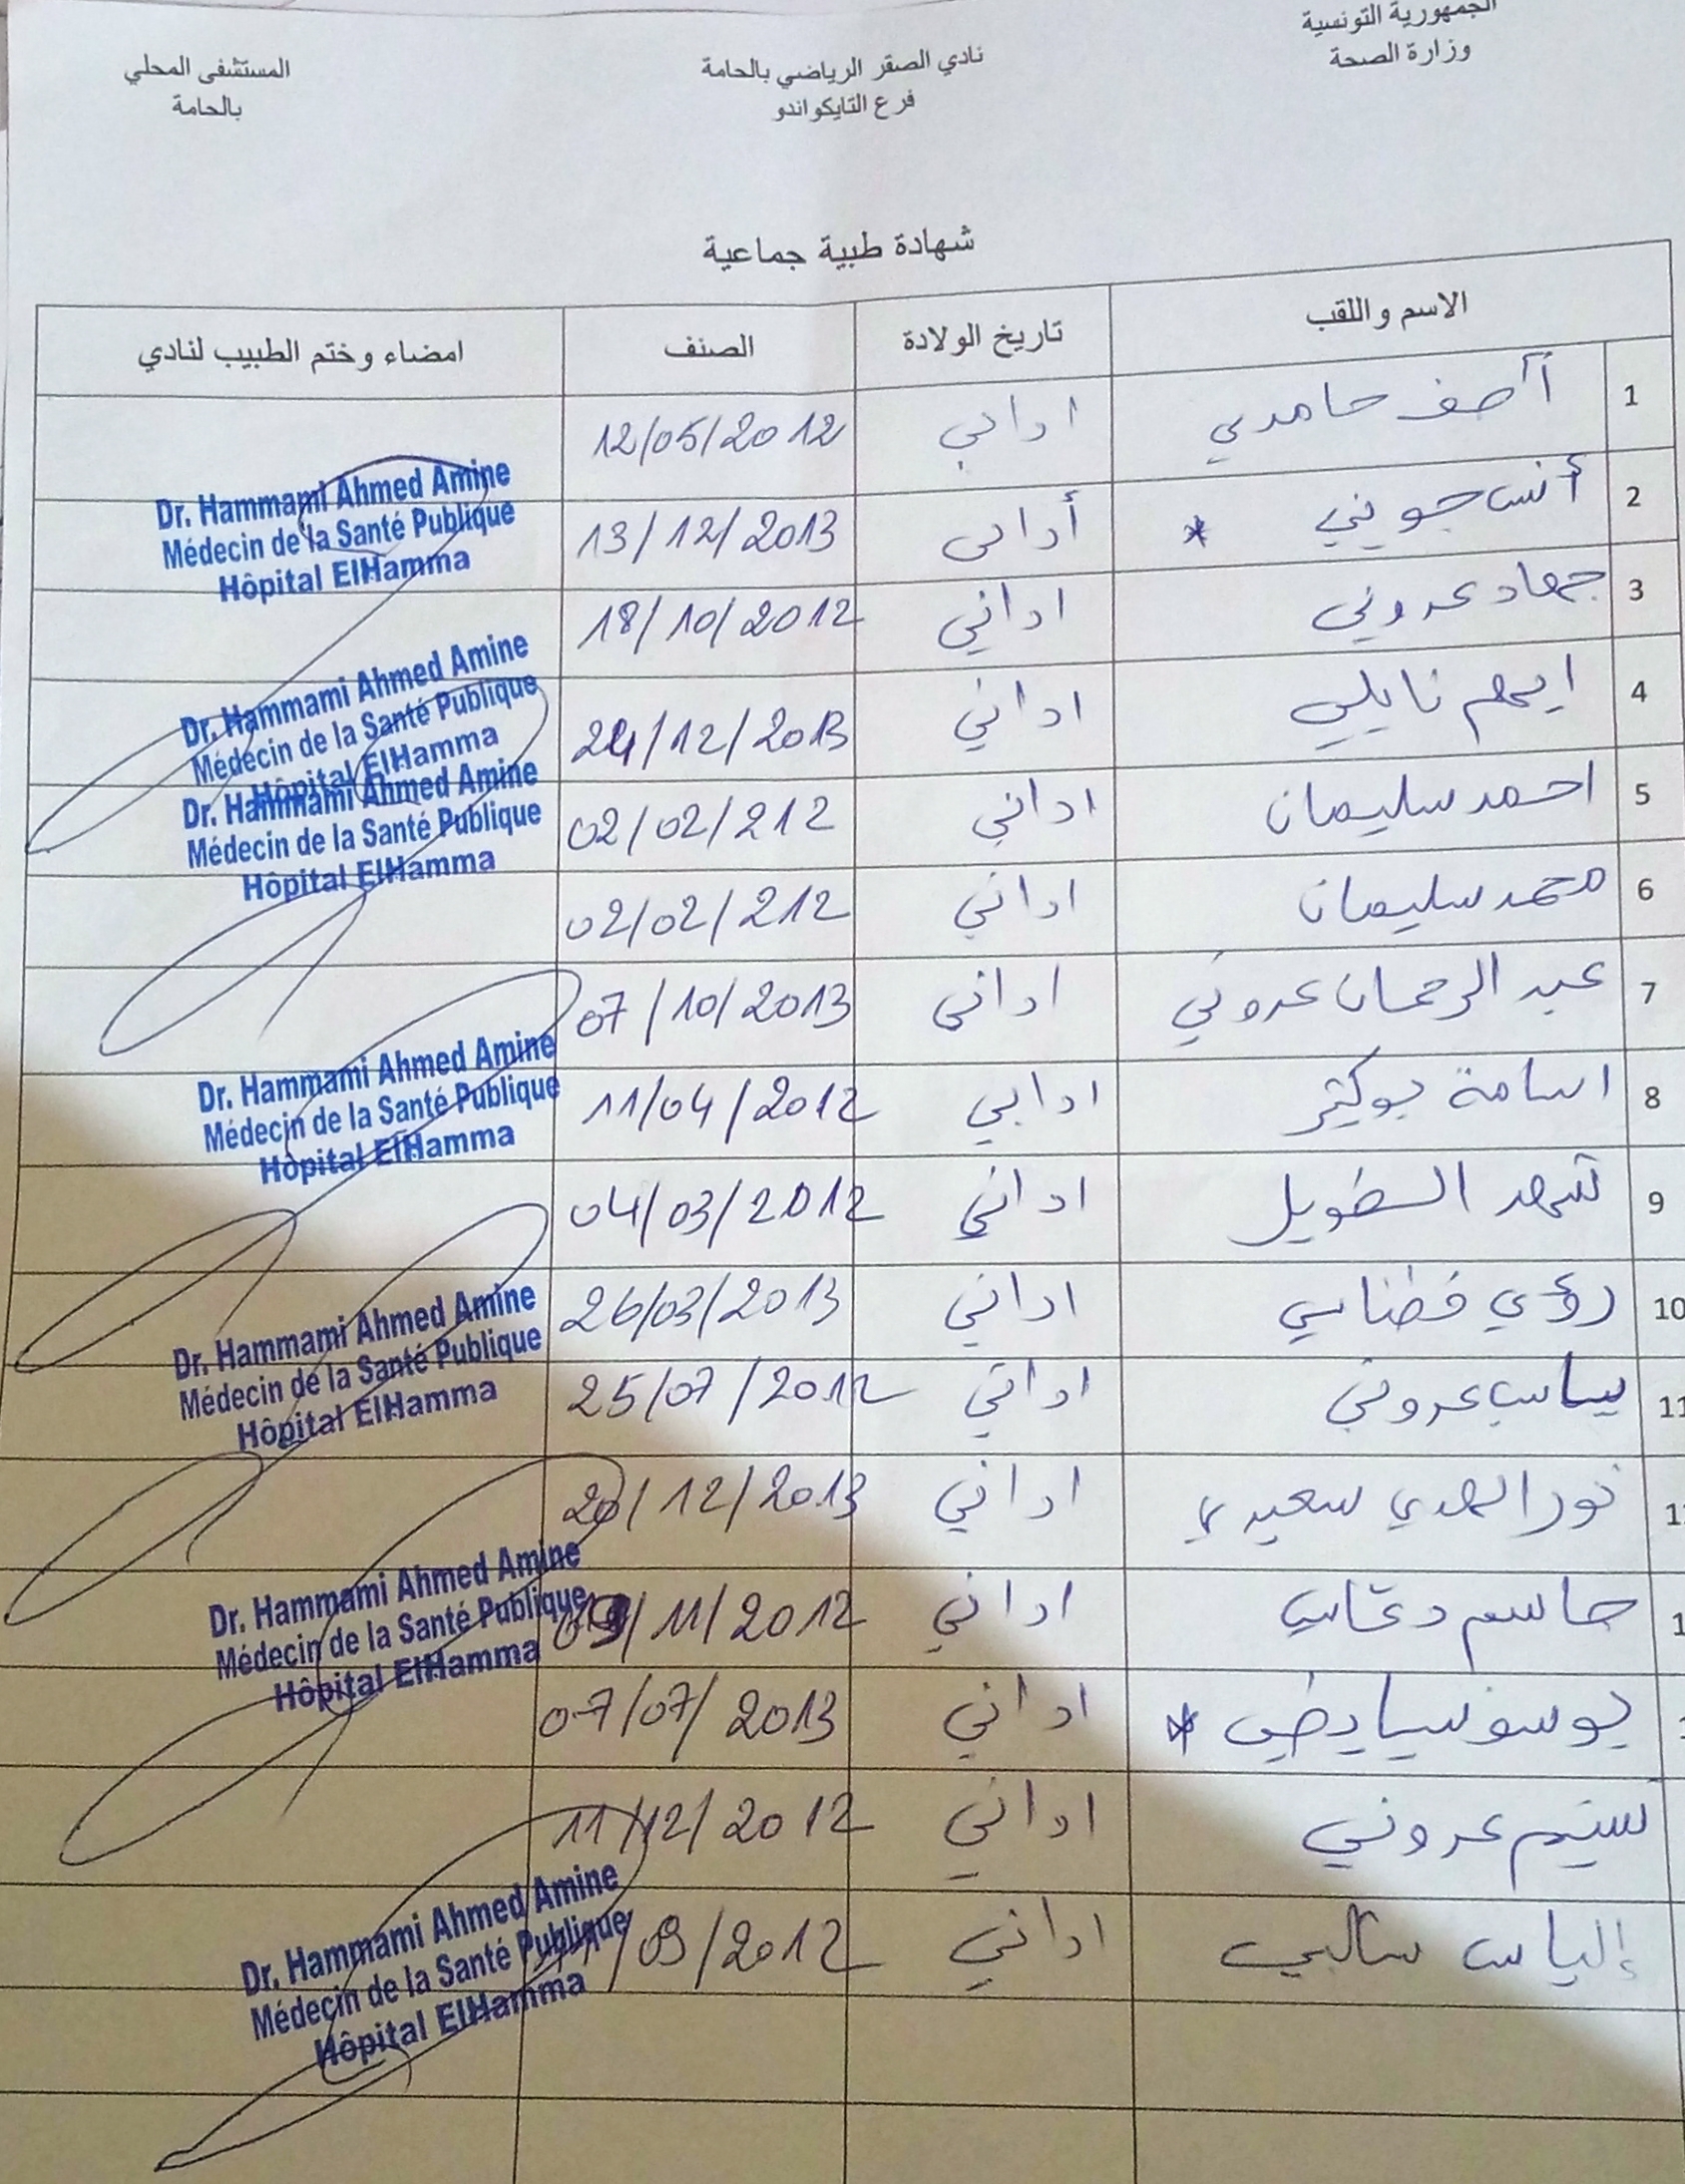 الجمهورية التونسية
وزارة الصحة
نادي الصقر الرياضي بالحامة
فرع التايكواندو
المستشفى المحلي
بالحامة
شهادة طبية جماعية
الاسم واللقب تاريخ الولادة الصنف امضاء وختم الطبيب لنادي
1 آصف حامدي اداني 12/05/2012
2 أنس جويني * أداني 13/12/2013
3 جهاد عروني اداني 18/10/2012
4 ايهم نايلي اداني 24/12/2013
5 احمد سليمان اداني 02/02/212
6 محمد سليمان اداني 02/02/212
7 عبد الرحمان عروني اداني 07/10/2013
8 اسامة بوكثير اداني 11/04/2012
9 شهد الطويل اداني 04/03/2012
10 رؤى اداني 26/03/2013
11 عروني اداني 25/07/2012
نور الهدي سعيدي اداني 20/12/2013
جاسم اداني /11/2012
يوسف * اداني 07/07/2013
عروني اداني 11/12/2012
إلياس اداني /09/2012
Dr. Hammami Ahmed Amine
Médecin de la Santé Publique
Hôpital ElHamma
Dr. Hammami Ahmed Amine
Médecin de la Santé Publique
Hôpital ElHamma
Dr. Hammami Ahmed Amine
Médecin de la Santé Publique
Hôpital ElHamma
Dr. Hammami Ahmed Amine
Médecin de la Santé Publique
Hôpital ElHamma
Dr. Hammami Ahmed Amine
Médecin de la Santé Publique
Hôpital ElHamma
Dr. Hammami Ahmed Amine
Médecin de la Santé Publique
Hôpital ElHamma
Dr. Hammami Ahmed Amine
Médecin de la Santé Publique
Hôpital ElHamma